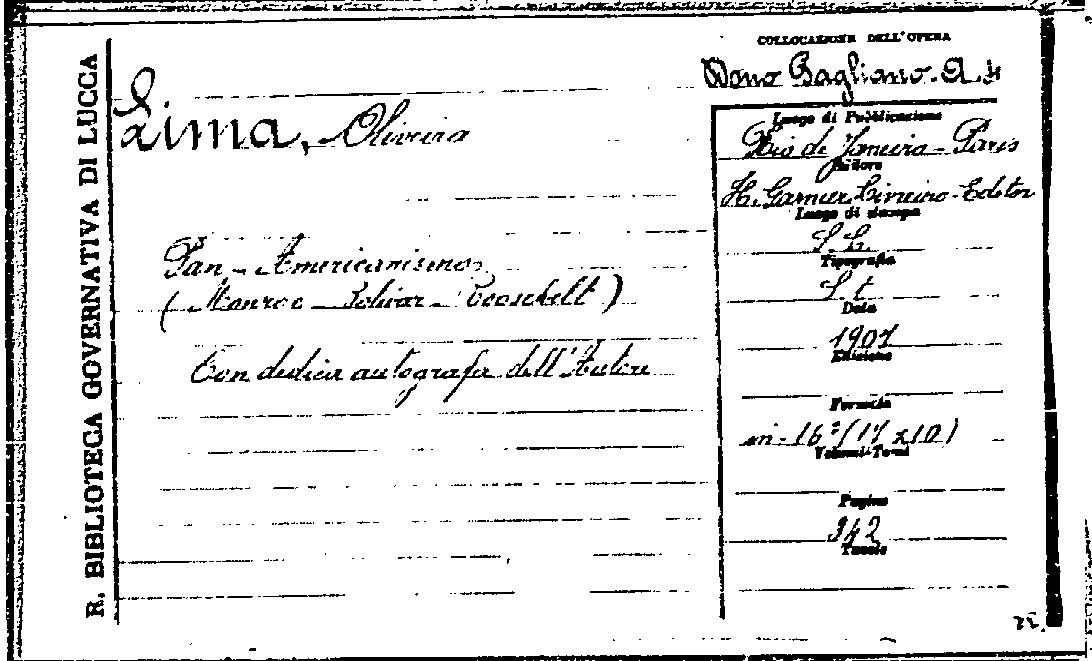 R. BIBLIOTECA GOVERNATIVA DI LUCCA
COLLOCAZIONE DELL'OPERA
Dono Bagliano. A. 4
Lima, Oliveira
Pan-Americanismo
(Monroe-Bolivar-Roosevelt)
Con dedica autografa dell'Autore
Luogo di Pubblicazione
Rio de Janeiro-Paris
Editore
H. Garnier Livreiro-Editor
Luogo di stampa
S. L.
Tipografia
S. t.
Data
1907
Edizione
Formato
in-16° (17 x 10)
Volumi-Tomi
Pagine
342
Tavole